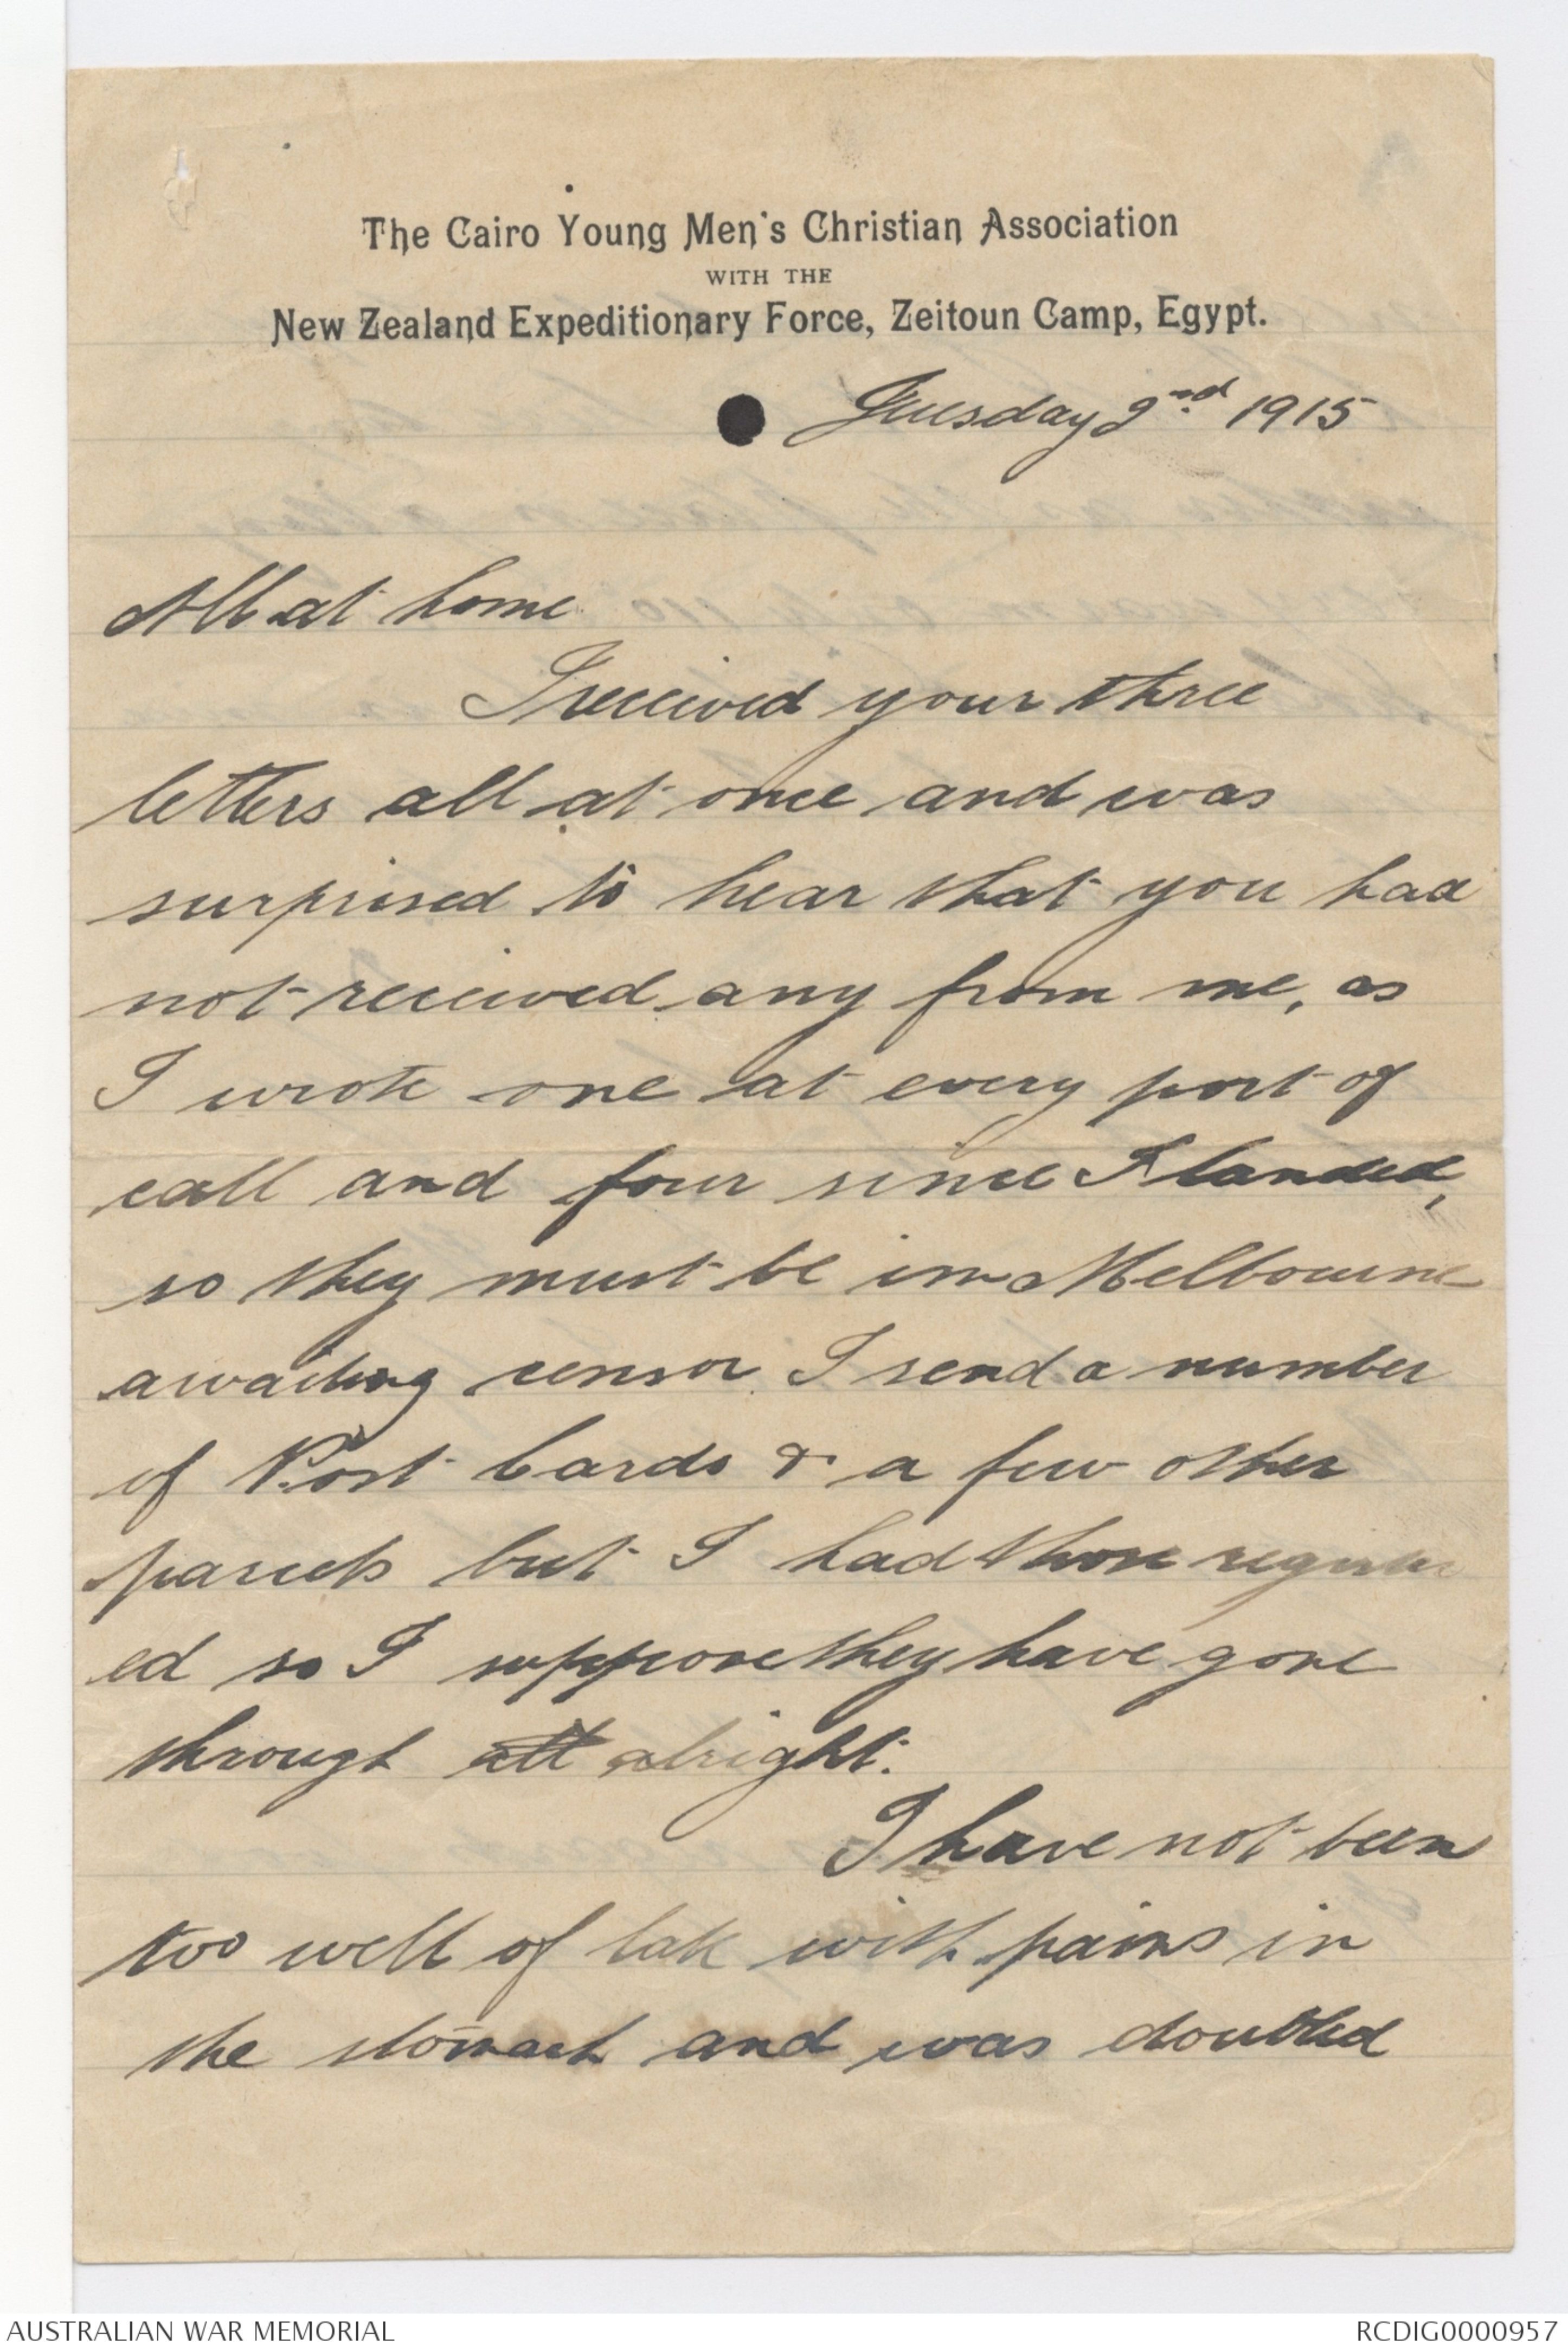 The Cairo Young Men's Christian Association
WITH THE
New Zealand Expeditionary Force, Zeitoun Camp, Egypt.
Tuesday 2nd 1915
All at home
I received your three
letters all at once and was
surprised to hear that you had
not received any from me, as
I wrote one at every port of
call and four since I landed,
so they must be in Melbourne
awaiting censor. I send a number
of Post Cards & a few other
parcels but I had those register
ed so I suppose they have gone
through all alright.
I have not been
too well of late with pains in
the stomach and was doubled
AUSTRALIAN WAR MEMORIAL
RCDIG0000957